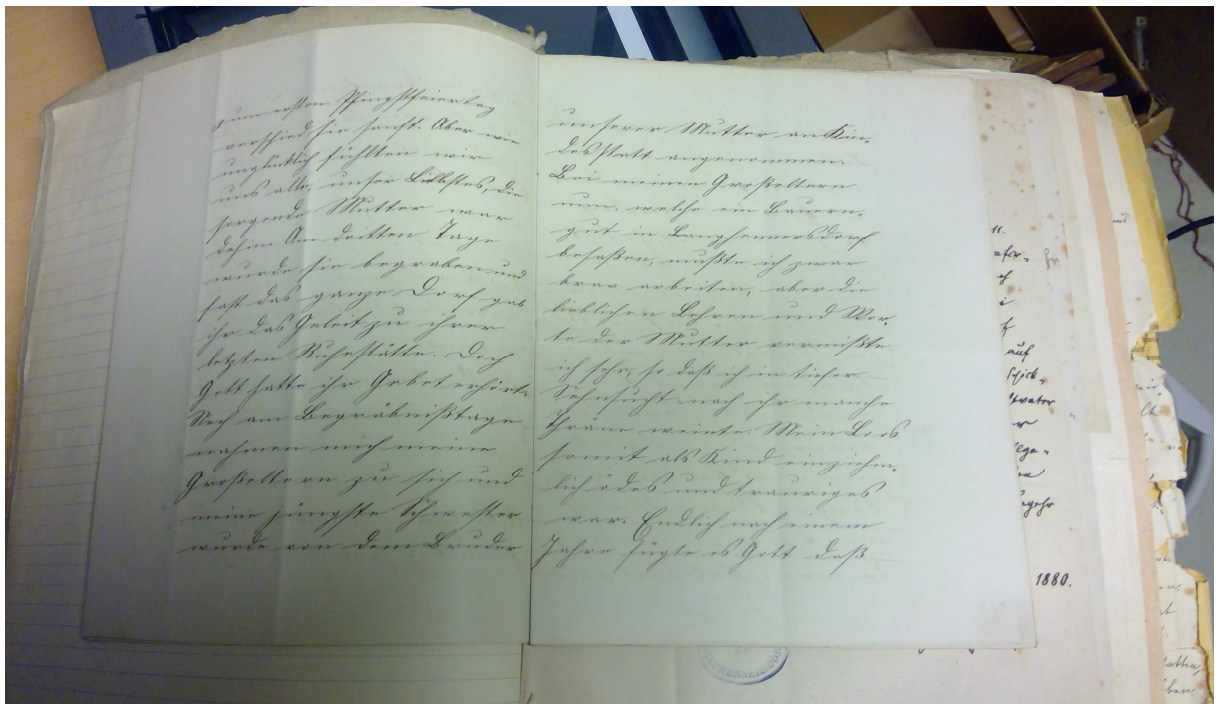 zum ersten Pfingstfeiertag
verschied sie sanft. Aber wie
unglücklich fühlten wir
uns alle, unser Liebstes, die
sorgende Mutter war
dahin. Am dritten Tage
wurde sie begraben und
fast das ganze Dorf gab
ihr das Geleit zu ihrer
letzten Ruhestätte. Doch
Gott hatte ihr Gebet erhört.
Noch am Begräbnißtage
nahmen mich meine
Großeltern zu sich und
meine jüngste Schwester
wurde von dem Bruder
unserer Mutter an Kin-
desstatt angenommen.
Bei meinen Großeltern
nun, welche ein Bauern-
gut in Langhennersdorf
besaßen, mußte ich zwar
brav arbeiten, aber die
lieblichen Lehren und Wor-
te der Mutter vermißte
ich sehr, so daß ich in tiefer
Sehnsucht nach ihr manche
Thräne weinte. Mein Loos
somit als Kind ein ziehm-
lich ödes und trauriges
war. Endlich nach einem
Jahre fügte es Gott daß
11.
auf
1880.